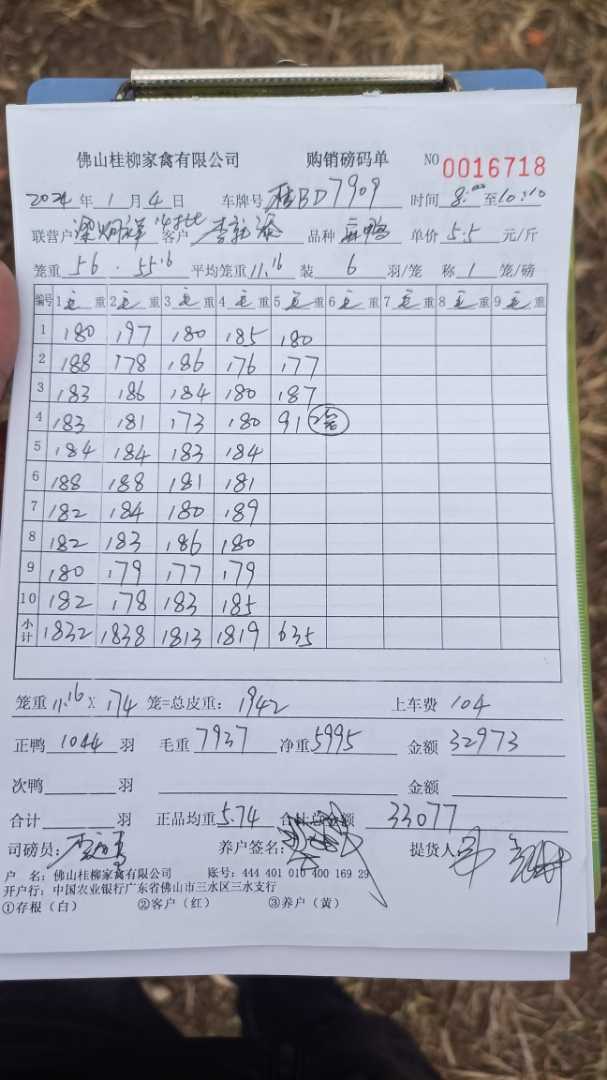 佛山桂柳家禽有限公司 购销磅码单 NO 0016718
2024年1月4日 车牌号 桂BD7909 时间 8:00至10:10
联营户 客户 品种 麻鸭 单价 5.5 元/斤
笼重 56 . 55.16 平均笼重 11.16 装 6 羽/笼 称 1 笼/磅
编号 1毛重 2毛重 3毛重 4毛重 5毛重 6毛重 7毛重 8毛重 9毛重
1 180 197 180 185 180
2 188 178 186 176 177
3 183 186 184 180 187
4 183 181 173 180 91
5 184 184 183 184
6 188 188 181 181
7 182 184 180 189
8 182 183 186 180
9 180 179 177 179
10 182 178 183 185
小计 1832 1838 1813 1819 635
笼重 11.16 X 174 笼=总皮重: 1942 上车费 104
正鸭 1044 羽 毛重 7937 净重 5995 金额 32973
次鸭 羽 金额
合计 羽 正品均重 5.74 合计总金额 33077
司磅员: 养户签名: 提货人:
户 名: 佛山桂柳家禽有限公司 账号: 444 401 010 400 169 29
开户行: 中国农业银行广东省佛山市三水区三水支行
①存根（白） ②客户（红） ③养户（黄）